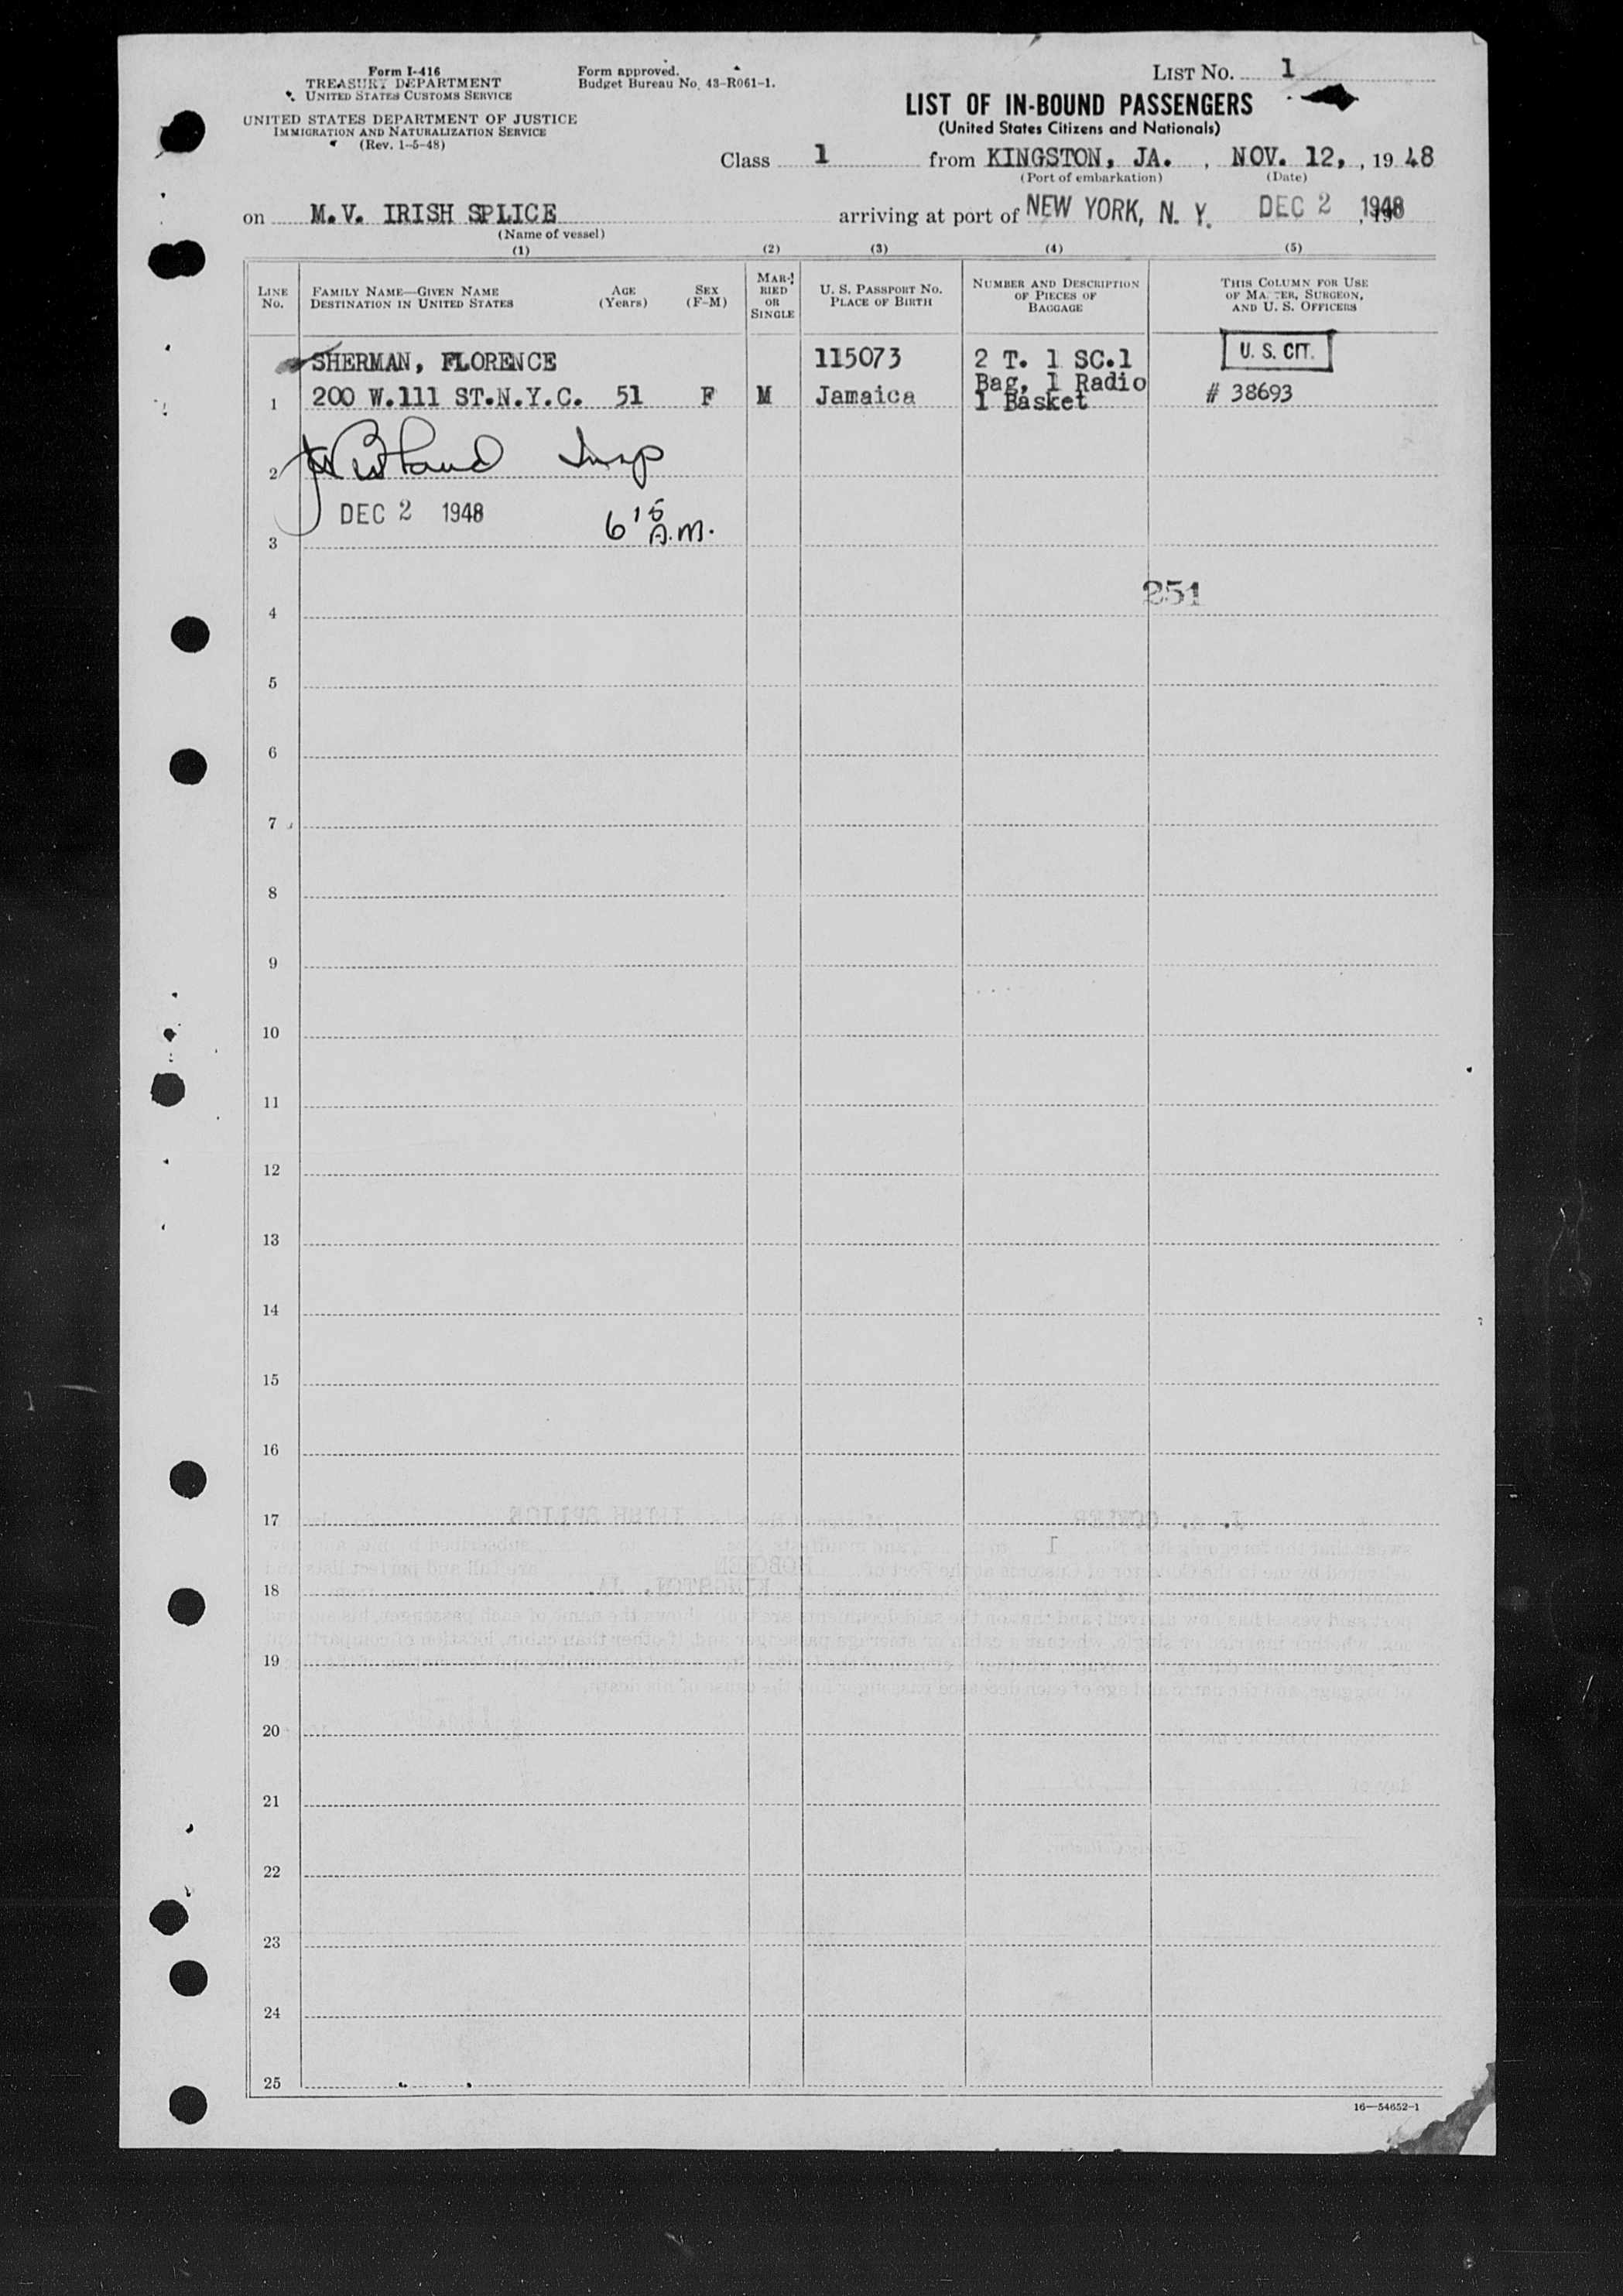 Form I-416
TREASURY DEPARTMENT
UNITED STATES CUSTOMS SERVICE
UNITED STATES DEPARTMENT OF JUSTICE
IMMIGRATION AND NATURALIZATION SERVICE
(Rev. 1-5-48)
Form approved.
Budget Bureau No. 43-R061-1.
LIST NO. 1
LIST OF IN-BOUND PASSENGERS
(United States Citizens and Nationals)
Class 1 from KINGSTON, JA. , NOV. 12, , 19 48
(Port of embarkation) (Date)
on M.V. IRISH SPLICE arriving at port of NEW YORK, N. Y. DEC 2 1948
(Name of vessel)
(1) (2) (3) (4) (5)
LINE No. FAMILY NAME—GIVEN NAME DESTINATION IN UNITED STATES AGE (Years) SEX (F-M) MARRIED OR SINGLE U. S. PASSPORT NO. PLACE OF BIRTH NUMBER AND DESCRIPTION OF PIECES OF BAGGAGE THIS COLUMN FOR USE OF MASTER, SURGEON, AND U. S. OFFICERS
SHERMAN, FLORENCE 115073 2 T. 1 SC.1 U. S. CIT.
Bag, 1 Radio
1 200 W.111 ST.N.Y.C. 51 F M Jamaica 1 Basket # 38693
2 Insp
DEC 2 1948 6 15 A.M.
3
251
4
5
6
7
8
9
10
11
12
13
14
15
16
17
18
19
20
21
22
23
24
25
16—54652-1